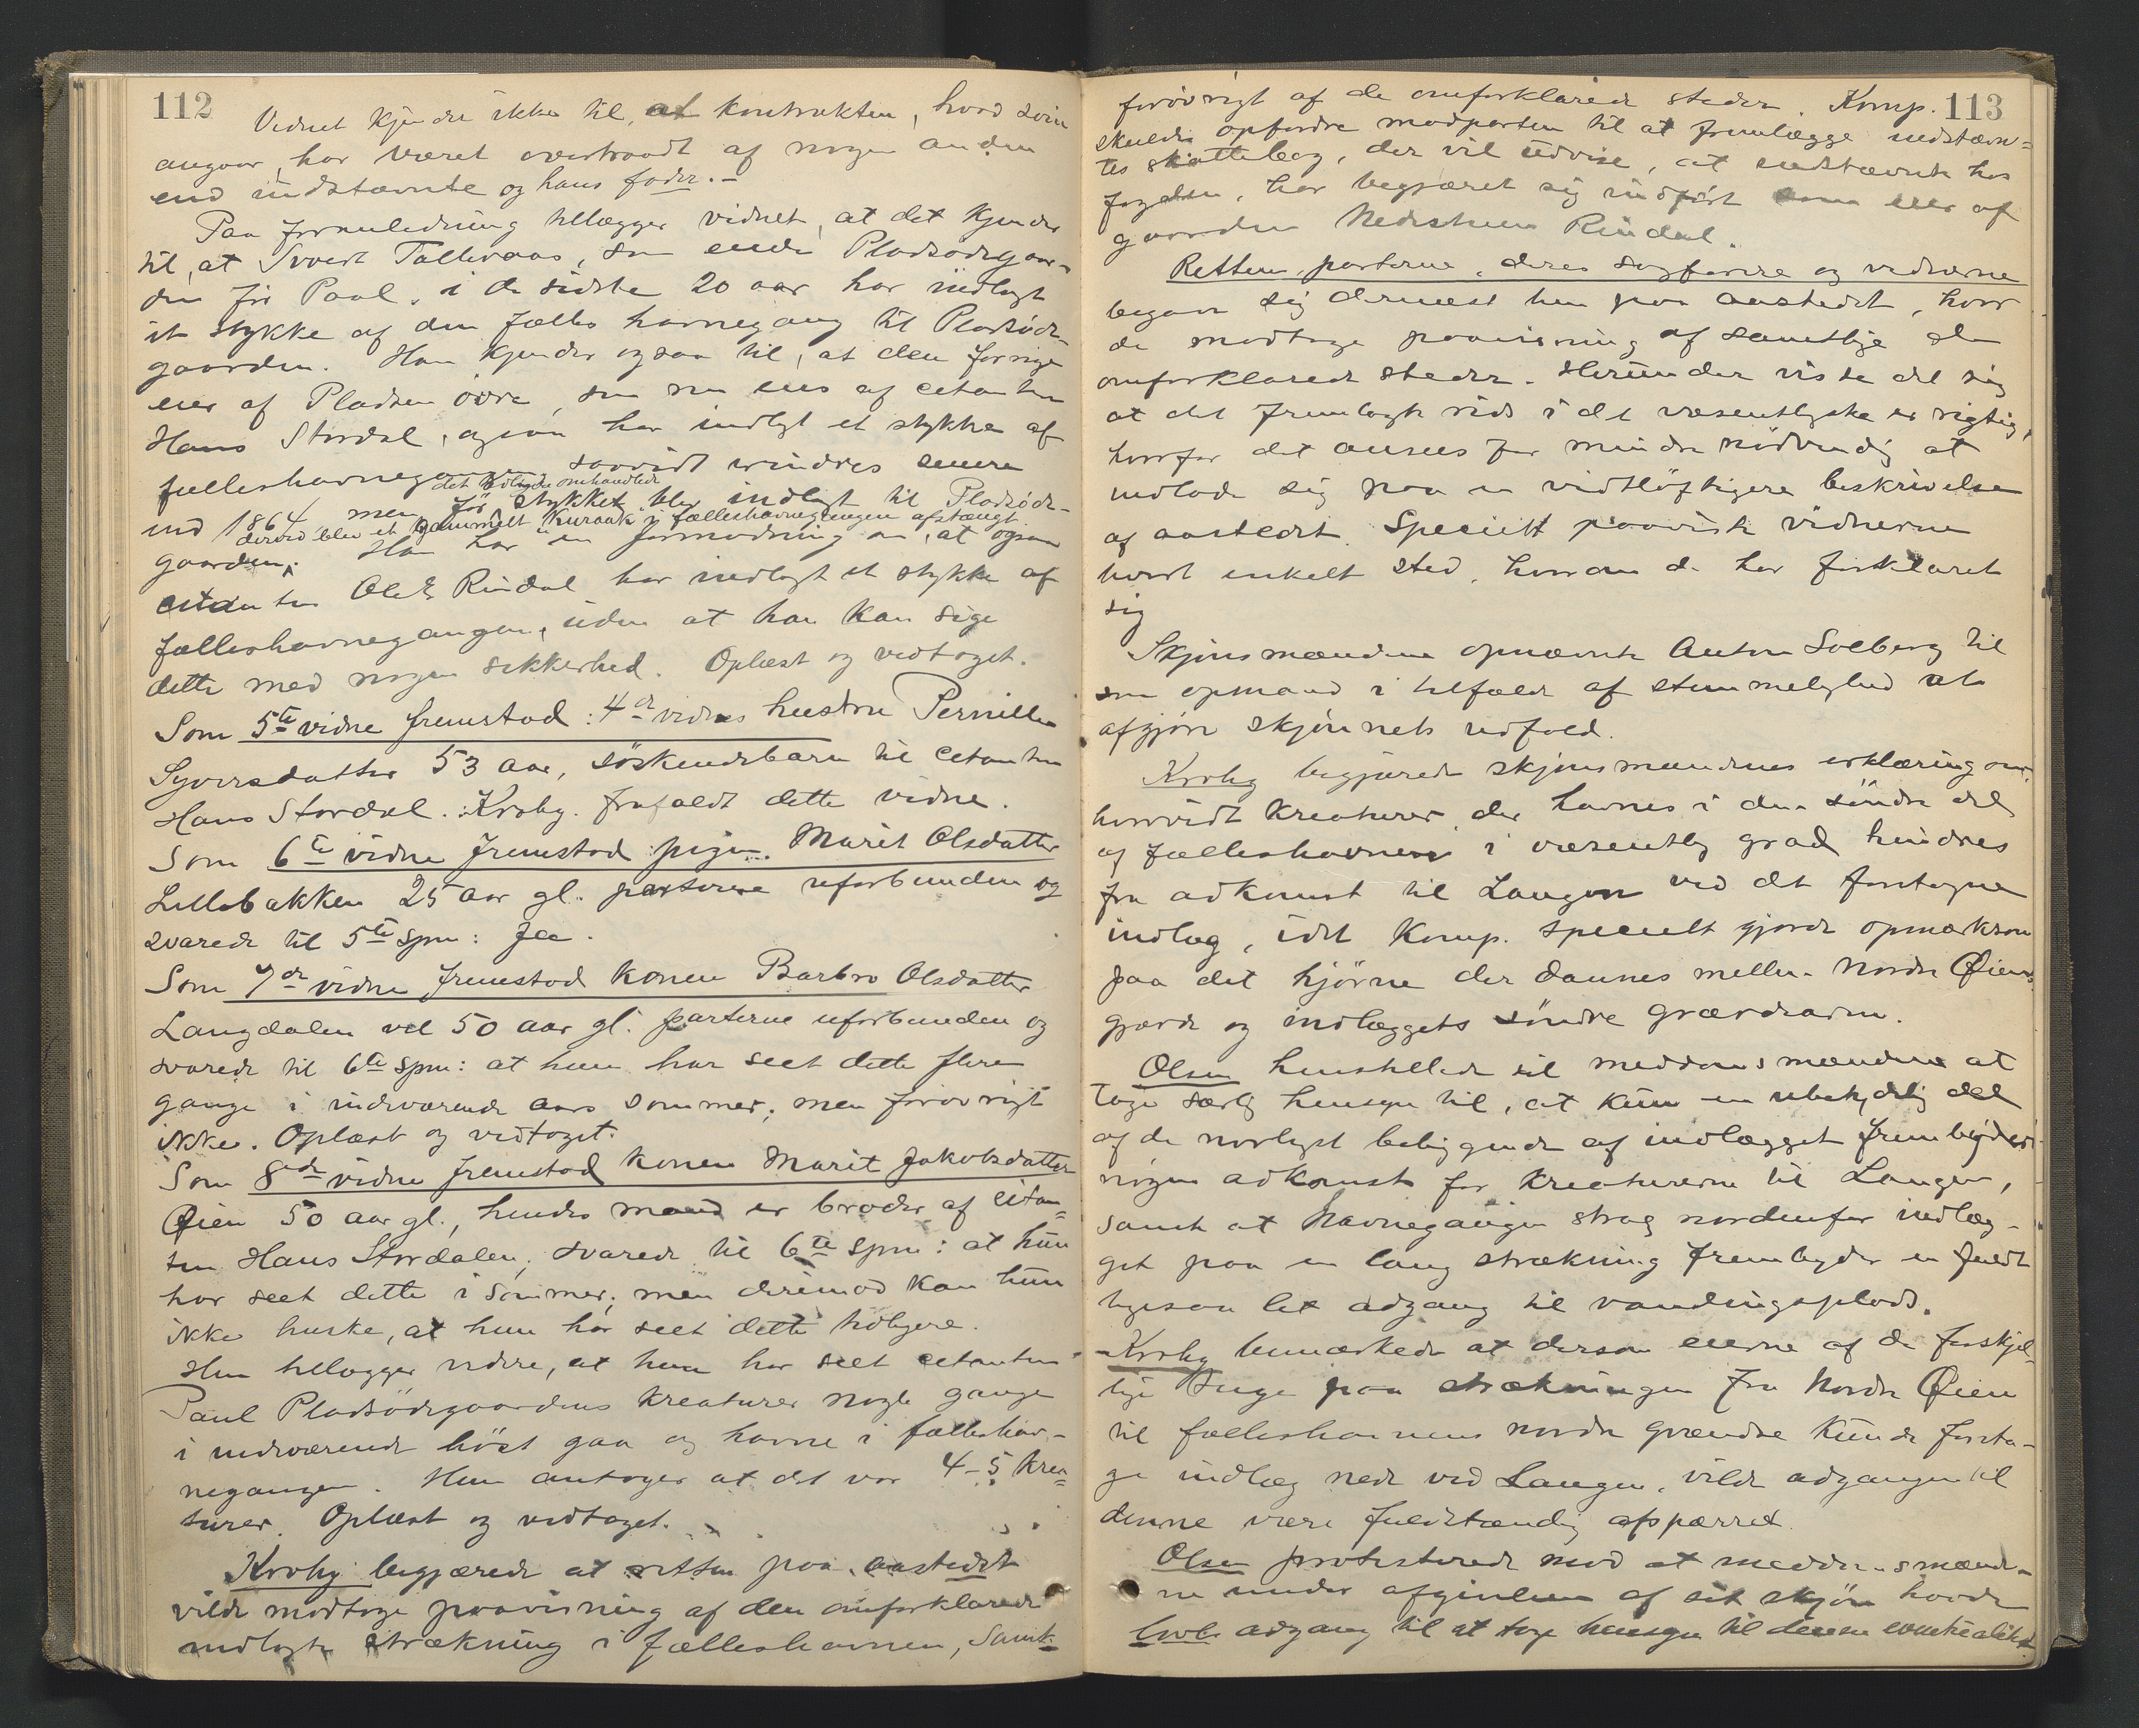 112
Vidnet kjender ikke til, at kontrakten, hvad som
angaar, har været overtraadt af nogen anden
end indstævnte og hans fader. –
Paa formuledning tillægger vidnet, at det kjender
til, at Sivert Tallevaas, som eiede Pladsødegaar-
den før Paul, i de sidste 20 aar har indlagt
et stykke af den fælles havnegang til Pladsøde-
gaarden. Han kjender ogsaa til, at den forrige
eier af Pladsen øvre, som nu eies af citanten
Hans Stordal, ogsaa har indlagt et stykke af
fælleshavnegangen, saavidt erindres senere
det heromhandlede
end 1864, men før stykket blev indlagt til Pladsøde-
derved blev et gammelt Kuraak i fælleshavnegangen afstængt.
gaarden. Han har en formodning om, at ogsaa
citanten Ole E. Rindal har indlagt et stykke af
fælleshavnegangen, uden at han kan sige
dette med nogen sikkerhed. Oplæst og vedtaget.
Som 5te vidne fremstod: 4de vidnes hustru Pernille
Syversdatter 53 aar, søskendebarn til citanten
Hans Stordal. Kroby frafaldt dette vidne.
Som 6te vidne fremstod pigen Marit Olsdatter
Lillebakken 25 aar gl. parterne uforbunden og
svarede til 5te spm: Ja.
Som 7de vidne fremstod konen Barbro Olsdatter
Langdalen vel 50 aar gl. parterne uforbunden og
svarede til 6te spm: at hun har seet dette flere
gange i indeværende aars sommer, men forøvrigt
ikke. Oplæst og vedtaget.
Som 8de vidne fremstod konen Marit Jakobsdatter
Øien 50 aar gl., hendes mand er broder af citan-
ten Hans Stordalen, svarede til 6te spm: at hun
har seet dette i sommer, men derimod kan hun
ikke huske, at hun har seet dette tidligere.
Hun tillægger videre, at hun har seet citanten
Paul Pladsødegaardens kreaturer nogle gange
i indeværende høst gaa og havne i fælleshav-
negangen. Hun antager at det var 4-5 krea-
turer. Oplæst og vedtaget.
Kroby begjærede at retten paa aastedet
vilde modtage paavisning af den omforklarede
indlagte strækning i fælleshavnen, samt
113
forøvrigt af de omforklarede steder. Komp.
skulde opfordre modparten til at fremlægge indstævn-
tes skattebog, der vil udvise, at indstævnte hos
fogden, har begjæret sig indført som eier af
gaarden Nedistuen Rindal.
Retten, parterne, deres sagførere og vidnerne
begav sig dernæst hen paa aastedet, hvor
de modtoge paavisning af samtlige de
omforklarede steder. Herunder viste det sig
at det fremlagte rids i det væsentligste er rigtig,
hvorfor det ansees for mindre nødvendig at
indlade sig paa en vidtløftigere beskrivelse
af aastedet. Specielt paaviste vidnerne
hvert enkelt sted, hvorom de har forklaret
sig
Skjønsmændene opnævnte Anton Solberg til
som opmand i tilfælde af stemmelighed at
afgjøre skjønnets udfald.
Kroby begjærede skjønsmændenes erklæring om,
hvorvidt kreaturer, der havnes i den søndre del
af fælleshavnen i væsentlig grad hindres
fra adkomst til Laugen ved det foretagne
indlæg, idet Komp. specielt gjorde opmærksom
paa det hjørne der dannes mellem nordre Øiens
gjærde og indlæggets søndre grændsearm.
Olsen henstillede til meddomsmændene at
tage særlig hensyn til, at kun en ubetydelig del
af de nordligst beliggende af indlægget frembyder
nogen adkomst for kreaturerne til Laugen,
samt at havnegangen strag nordenfor indlæg-
get paa en lang strækning frembyder en fuldt
ligesaa let adgang til vandingsplads.
Kroby bemærkede at dersom eierne af de forskjel-
lige Enge paa strækningen fra Nordre Øien
til fælleshavnens nordre grændse kunde foreta-
ge indlæg nede ved Laugen, vilde adgangen til
denne være fuldstændig afspærret.
Olsen protesterede mod at meddomsmænde-
ne under afgivelsen af sit skjøn havde
lovl. adgang til at tage hensyn til denne eventualitet